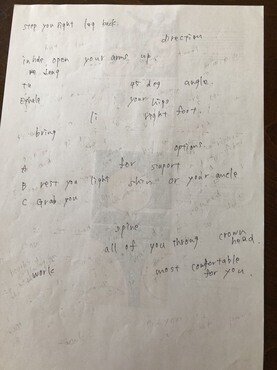 stop you right leg back.
direction
inhale open your arms up,
as long
to 45 deg angle
Exhale your hips
li right foot.
bring
options
A for suport
B rest you light shin or your ancle
C Grab you
spine
all of you throug crown
head.
work most comfortable
for you.